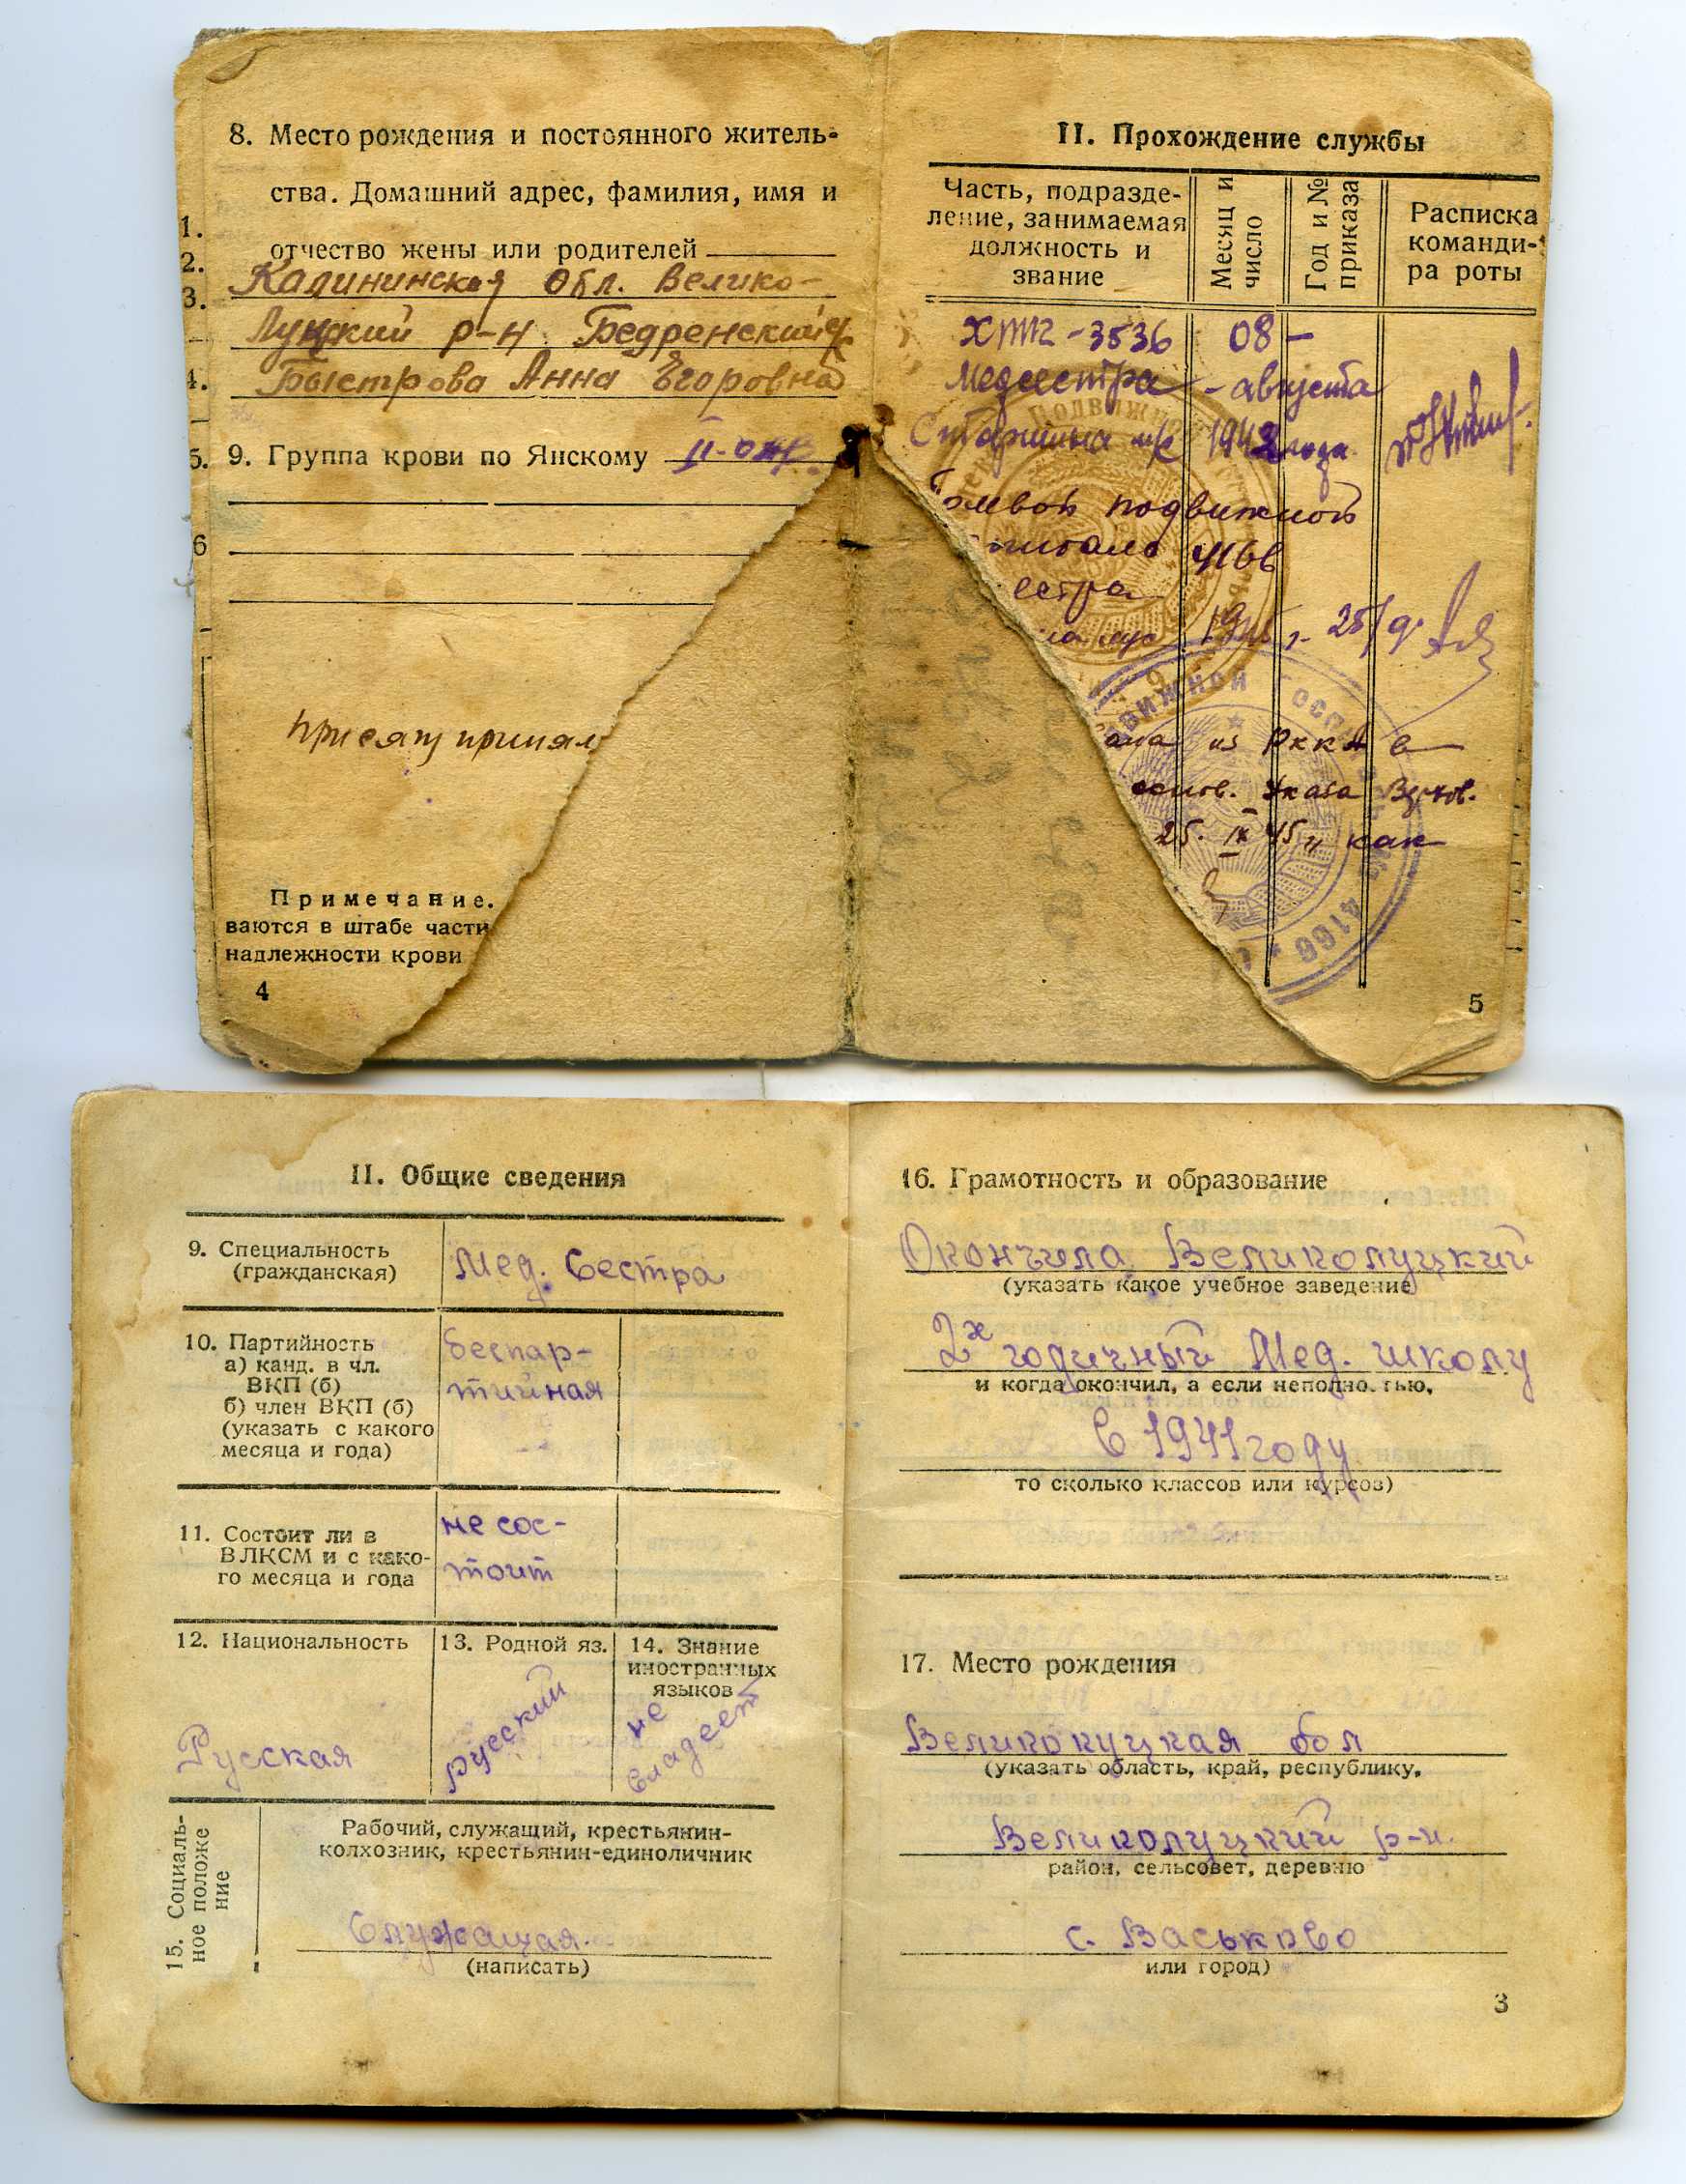 8. Место рождения и постоянного житель-
ства. Домашний адрес, фамилия, имя и
отчество жены или родителей
Калининская Обл. Велико-
Луцкий р-н Бедренский
Быстрова Анна Егоровна
9. Группа крови по Янскому II-
1.
2.
3.
4.
5.
6
Присягу принял
Примечание.
ваются в штабе части
надлежности крови
4
II. Прохождение службы
Часть, подразде-
ление, занимаемая
должность и
звание
Месяц и
число
Год и №
приказа
Расписка
команди-
ра роты
ХППГ-3536 08-
Медсестра - августа
Старшина м/с 1943 года
подвижной
4166
естра
1945 г. 25/9.
из РККА в
основ. Указа Верхов.
25. IX 45 г. как
ПОДВИЖ
ВИЖНОЙ ГОСП
№ 4166
5
II. Общие сведения
9. Специальность
(гражданская)
Мед. Сестра
10. Партийность
а) канд. в чл.
ВКП (б)
б) член ВКП (б)
(указать с какого
месяца и года)
беспар-
тийная
11. Состоит ли в
ВЛКСМ и с како-
го месяца и года
не сос-
тоит
12. Национальность
Русская
13. Родной яз.
русский
14. Знание
иностранных
языков
не
владеет
15. Социаль-
ное положе
ние
Рабочий, служащий, крестьянин-
колхозник, крестьянин-единоличник
Служащая.
(написать)
16. Грамотность и образование
Окончила Великолуцкий
(указать какое учебное заведение)
2х годичный Мед. школу
и когда окончил, а если неполностью,
В 1941 году
то сколько классов или курсов)
17. Место рождения
Великолуцкая обл
(указать область, край, республику,
Великолуцкий р-н.
район, сельсовет, деревню
с. Васьково
или город)
3